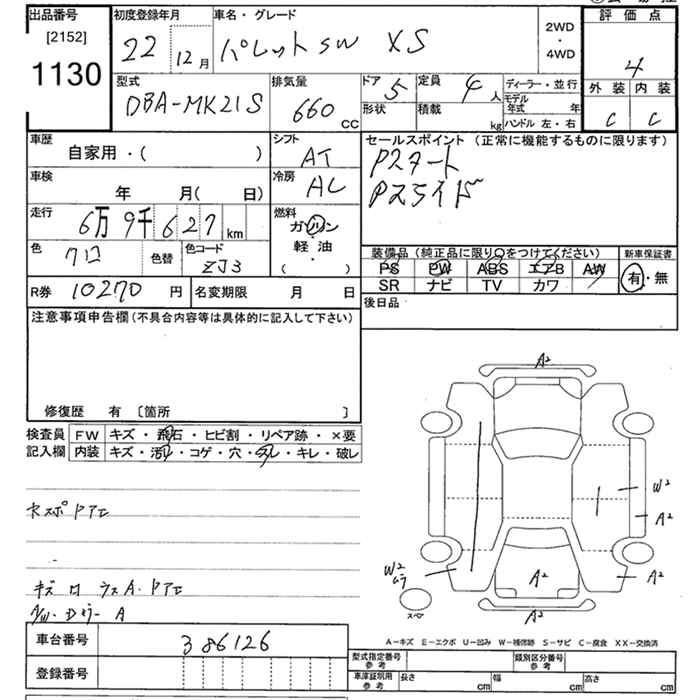 出品番号
[2152]
1130
初度登録年月
22 12月
車名・グレード
パレットSW XS
2WD
・
4WD
評価点
4
外装 内装
C C
型式
DBA-MK21S
排気量
660 CC
ドア 5
定員 4人
形状
積載 kg
ディーラー・並行
モデル年式 年
ハンドル 左・右
車歴
自家用・( )
シフト
AT
セールスポイント (正常に機能するものに限ります)
Pスタート
Pスライド
車検
年 月( 日)
冷房
AC
走行
6万9千627km
燃料
ガソリン
・
軽油・
( )
色
クロ
色替
色コード
ZJ3
装備品 (純正品に限り○をつけてください)
PS PW ABS エアB AW
SR ナビ TV カワ
新車保証書
有・無
R券 10270円
名変期限 月 日
後日品
注意事項申告欄 (不具合内容等は具体的に記入して下さい)
修復歴 有 〔箇所 〕
検査員 FW キズ・飛石・ヒビ割・リペア跡・×要
記入欄 内装 キズ・汚れ・コゲ・穴・スレ・キレ・破レ
A2
W2
A2
W2
ムラ
A2
A2
スペア
A2
A−キズ E−エクボ U−凹み W−補修跡 S−サビ C−腐食 XX−交換済
車台番号 386126
登録番号
型式指定番号
参考
類別区分番号
参考
車庫証明用
参考
長さ cm 幅 cm 高さ cm